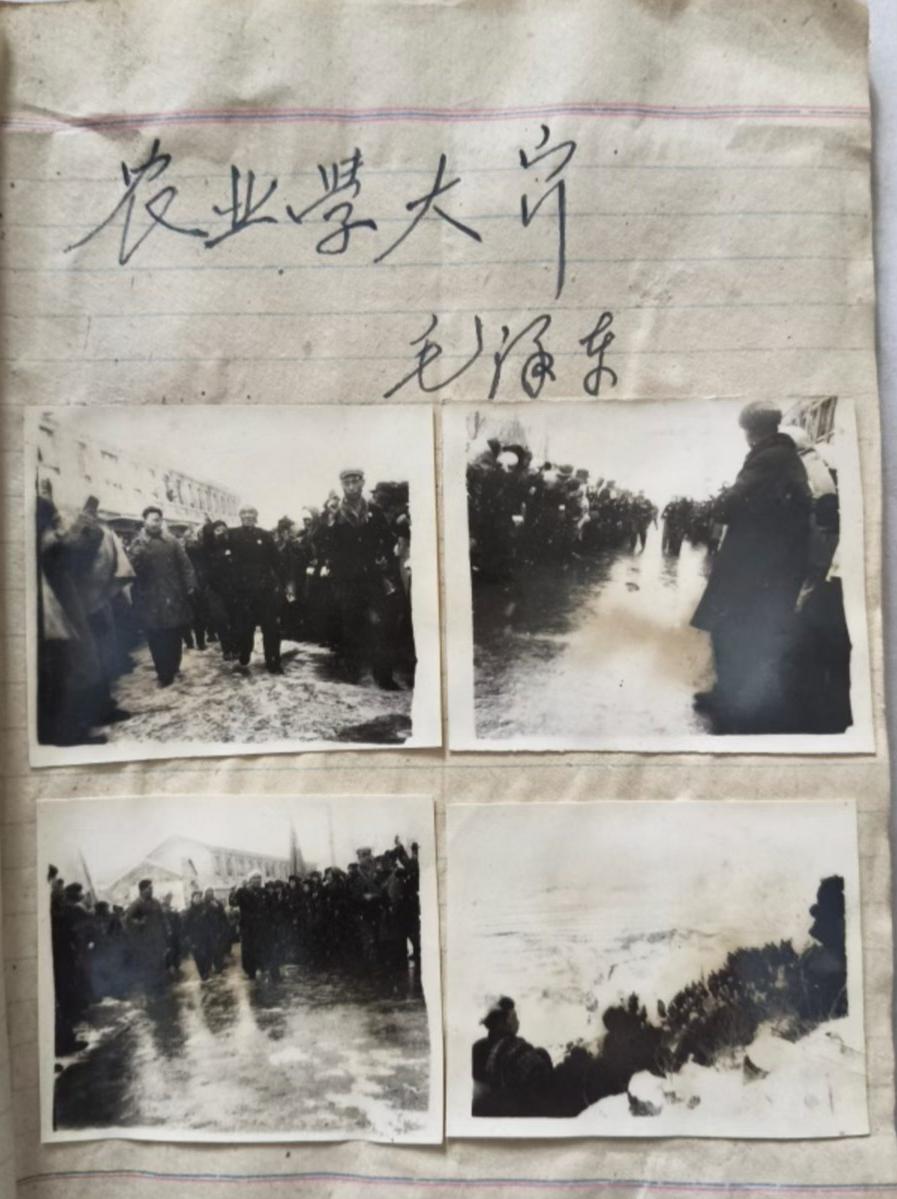 农业学大寨
毛泽东